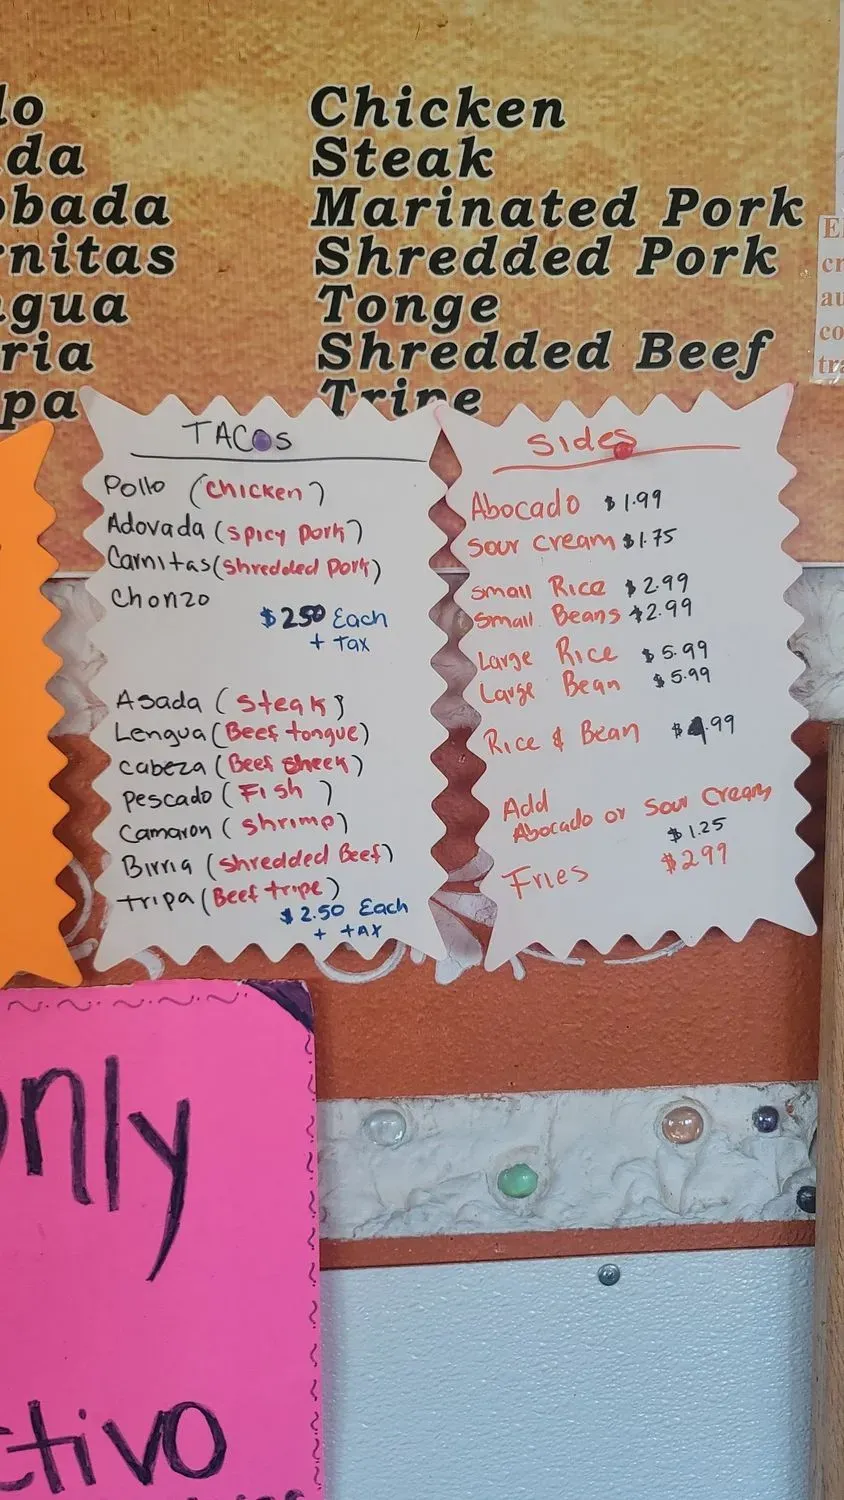 lo Chicken
da Steak
obada Marinated Pork
nitas Shredded Pork
gua Tonge
ria Shredded Beef
pa Tripe
E
cr
au
co
tra
TACOS
Pollo (chicken)
Adovada (spicy pork)
Carnitas (shredded pork)
Chorizo
$2.50 Each
+ Tax
Asada (steak)
Lengua (Beef tongue)
Cabeza (Beef sheek)
Pescado (Fish)
Camaron (shrimp)
Birria (shredded Beef)
tripa (Beef tripe)
$2.50 Each
+ tAX
Sides
Abocado $1.99
Sour cream $1.75
Small Rice $2.99
Small Beans $2.99
Large Rice $5.99
Large Bean $5.99
Rice & Bean $4.99
Add
Abocado or Sour Cream
$1.25
Fries $2.99
only
ctivo